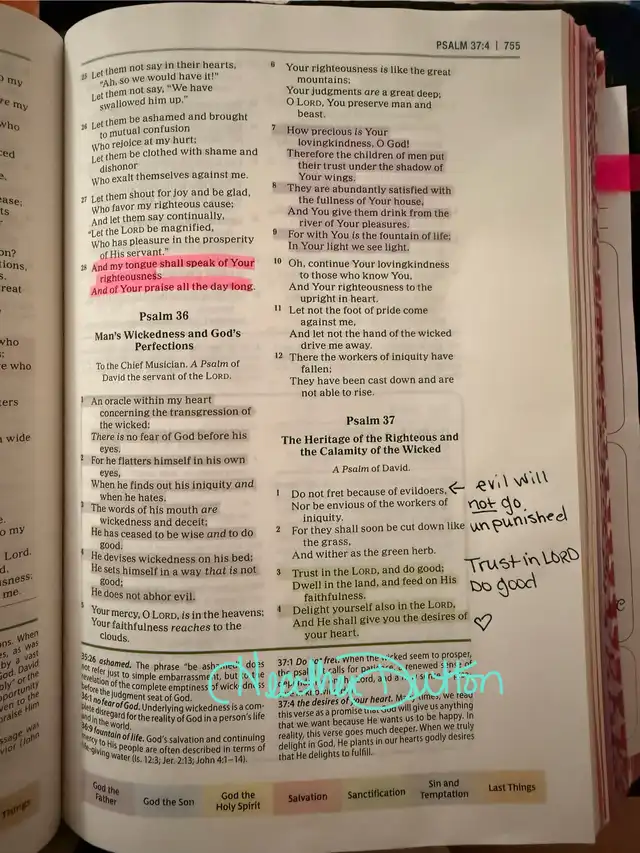 PSALM 37:4 | 755
25 Let them not say in their hearts,
"Ah, so we would have it!"
Let them not say, "We have
swallowed him up."
26 Let them be ashamed and brought
to mutual confusion
Who rejoice at my hurt;
Let them be clothed with shame and
dishonor
Who exalt themselves against me.
27 Let them shout for joy and be glad,
Who favor my righteous cause;
And let them say continually,
"Let the LORD be magnified,
Who has pleasure in the prosperity
of His servant."
28 And my tongue shall speak of Your
righteousness
And of Your praise all the day long.
Psalm 36
Man's Wickedness and God's
Perfections
To the Chief Musician. A Psalm of
David the servant of the LORD.
1 An oracle within my heart
concerning the transgression of
the wicked:
There is no fear of God before his
eyes.
2 For he flatters himself in his own
eyes,
When he finds out his iniquity and
when he hates.
3 The words of his mouth are
wickedness and deceit;
He has ceased to be wise and to do
good.
4 He devises wickedness on his bed;
He sets himself in a way that is not
good;
He does not abhor evil.
5 Your mercy, O LORD, is in the heavens;
Your faithfulness reaches to the
clouds.
6 Your righteousness is like the great
mountains;
Your judgments are a great deep;
O LORD, You preserve man and
beast.
7 How precious is Your
lovingkindness, O God!
Therefore the children of men put
their trust under the shadow of
Your wings.
8 They are abundantly satisfied with
the fullness of Your house,
And You give them drink from the
river of Your pleasures.
9 For with You is the fountain of life;
In Your light we see light.
10 Oh, continue Your lovingkindness
to those who know You,
And Your righteousness to the
upright in heart.
11 Let not the foot of pride come
against me,
And let not the hand of the wicked
drive me away.
12 There the workers of iniquity have
fallen;
They have been cast down and are
not able to rise.
Psalm 37
The Heritage of the Righteous and
the Calamity of the Wicked
A Psalm of David.
1 Do not fret because of evildoers,
Nor be envious of the workers of
iniquity.
2 For they shall soon be cut down like
the grass,
And wither as the green herb.
3 Trust in the LORD, and do good;
Dwell in the land, and feed on His
faithfulness.
4 Delight yourself also in the LORD,
And He shall give you the desires of
your heart.
← evil will
not go
unpunished
Trust in LORD
Do good
♡
35:26 ashamed. The phrase "be ashamed" does
not refer just to simple embarrassment, but to the
revelation of the complete emptiness of wickedness
before the judgment seat of God.
36:1 no fear of God. Underlying wickedness is a com-
plete disregard for the reality of God in a person's life
and in the world.
36:9 fountain of life. God's salvation and continuing
mercy to His people are often described in terms of
life-giving water (Is. 12:3; Jer. 2:13; John 4:1–14).
37:1 Do not fret. When the wicked seem to prosper,
the psalmist calls for patience, renewed
37:4 the desires of your heart. Many times, we read
this verse as a promise that God will give us anything
that we want because He wants us to be happy. In
reality, this verse goes much deeper. When we truly
delight in God, He plants in our hearts godly desires
that He delights to fulfill.
Heather Dutton
God the
Father
God the Son
God the
Holy Spirit
Salvation
Sanctification
Sin and
Temptation
Last Things